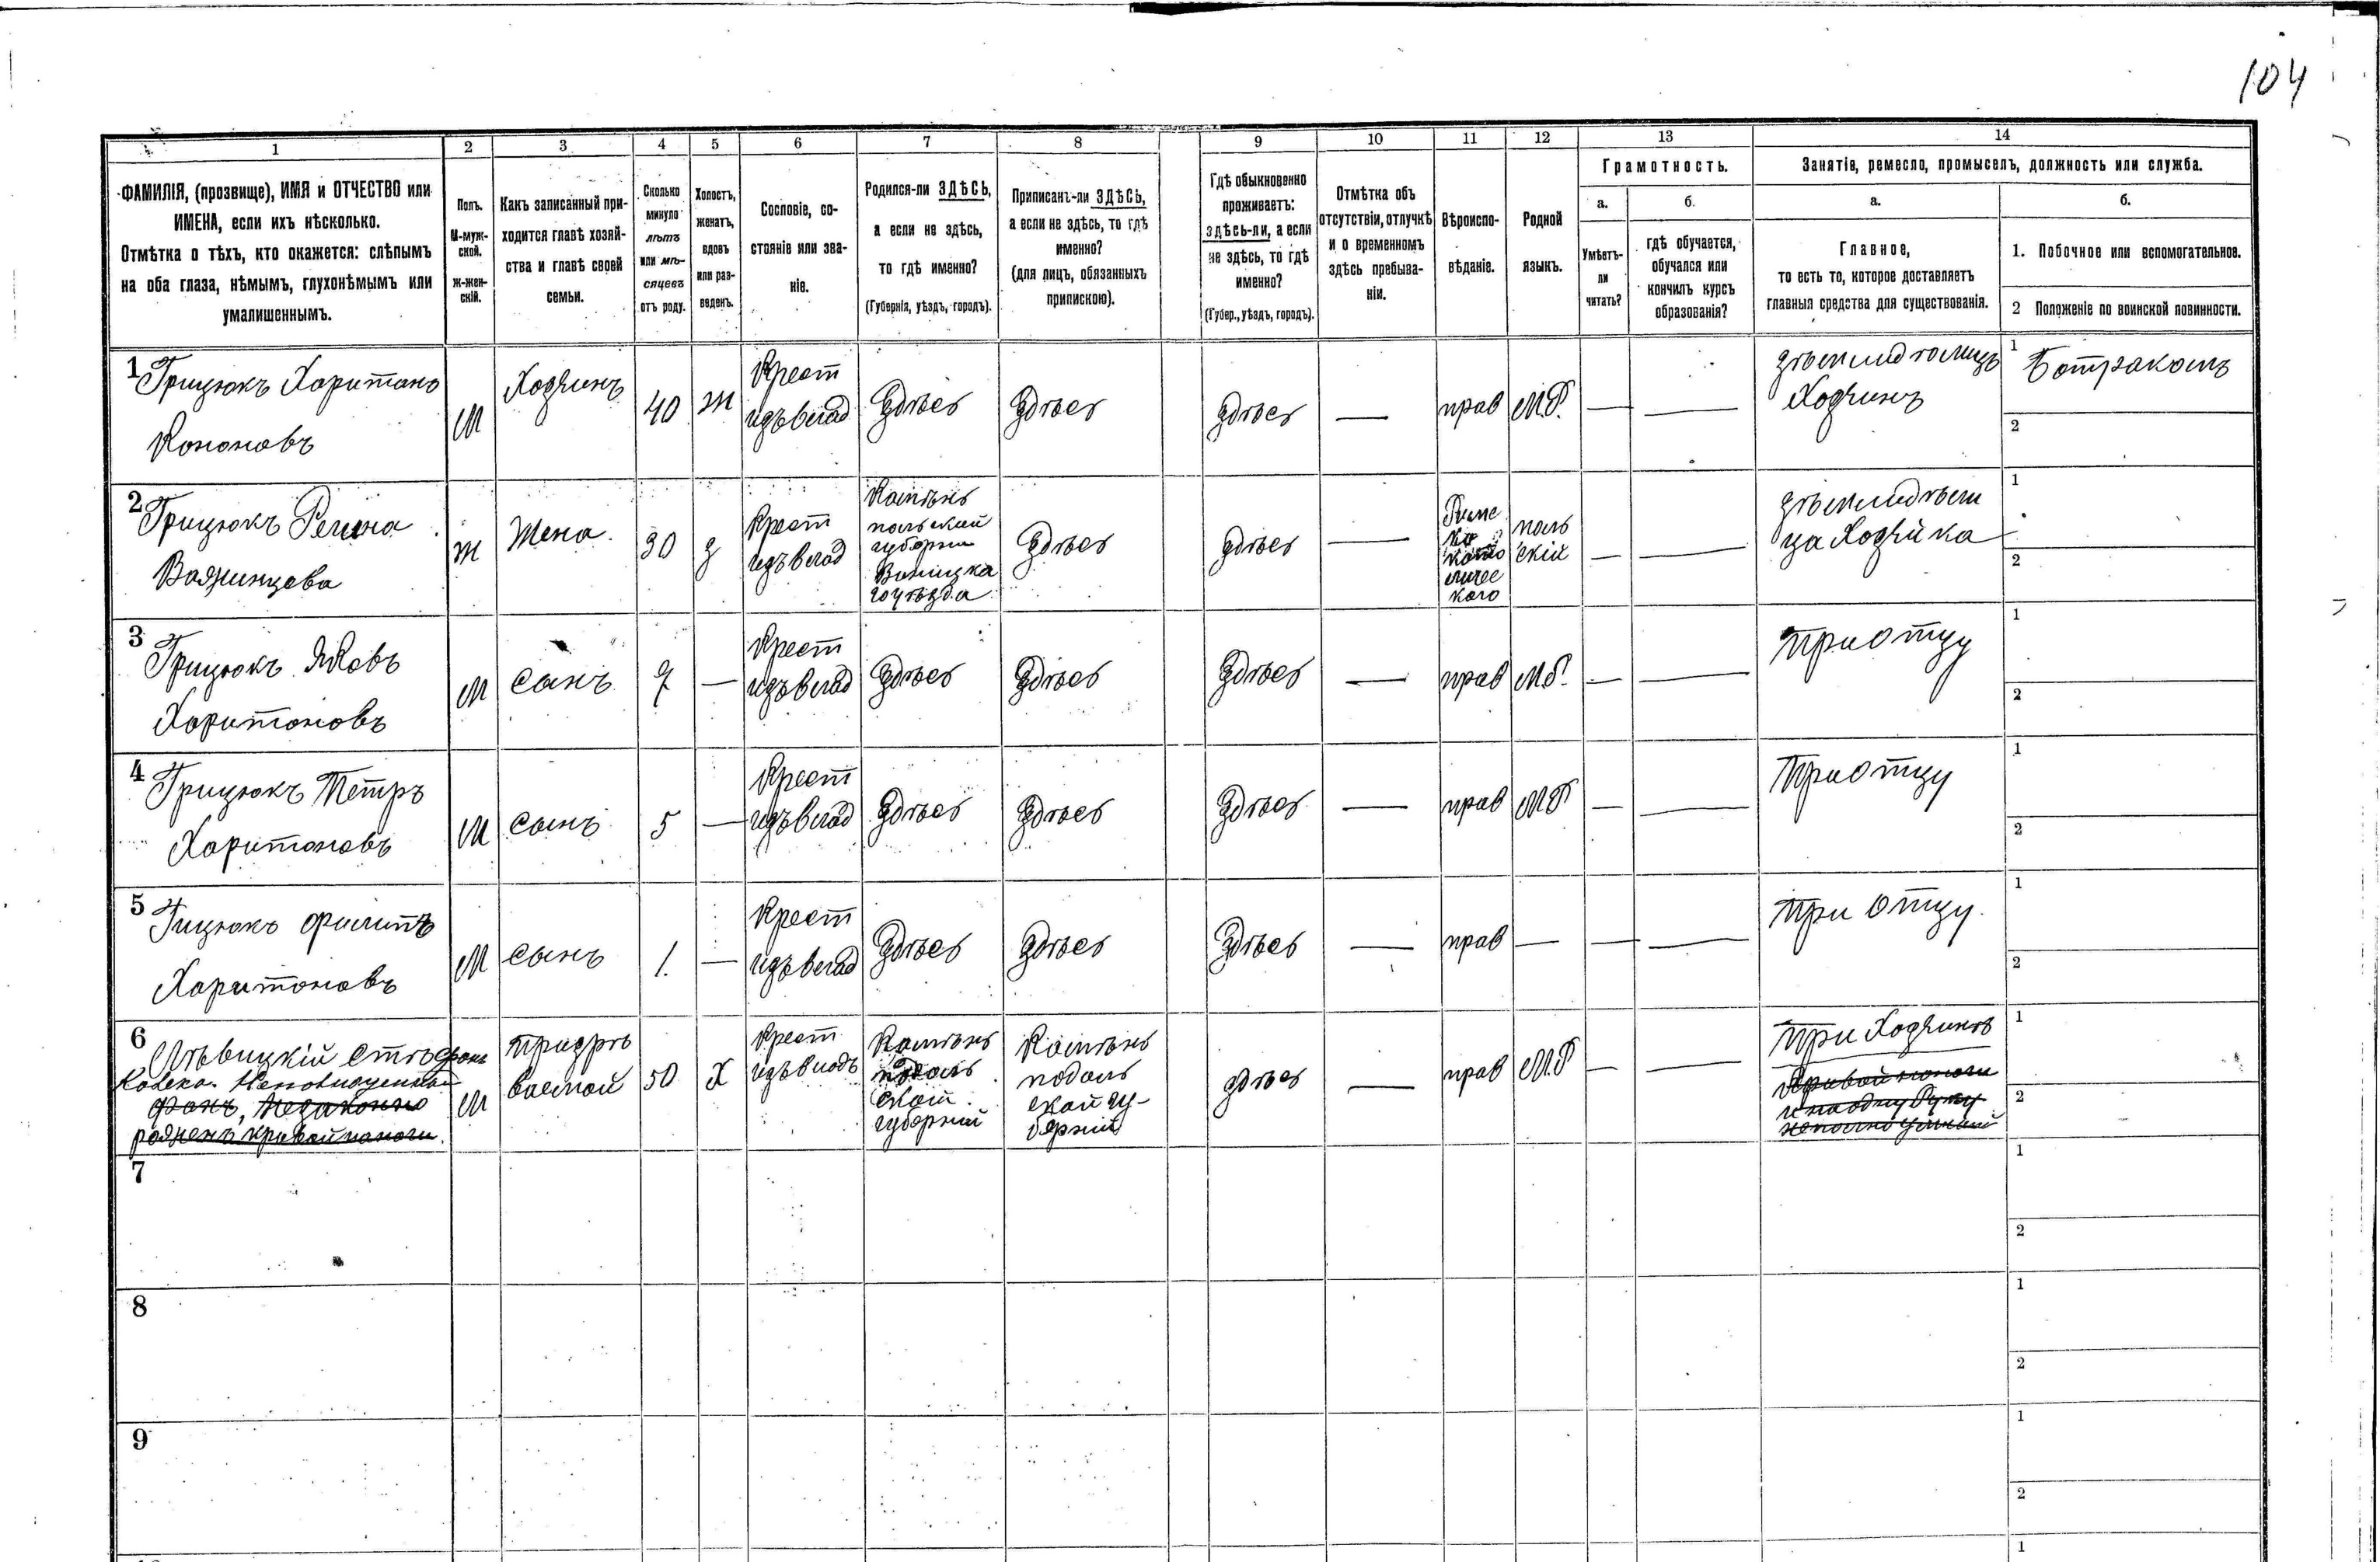 104
1 2 3 4 5 6 7 8 9 10 11 12 13 14
ФАМИЛІЯ, (прозвище), ИМЯ и ОТЧЕСТВО или
ИМЕНА, если ихъ нѣсколько.
Отмѣтка о тѣхъ, кто окажется: слѣпымъ
на оба глаза, нѣмымъ, глухонѣмымъ или
умалишеннымъ.
Полъ.
М-муж-
ской.
Ж-жен-
скій.
Какъ записанный при-
ходится главѣ хозяй-
ства и главѣ своей
семьи.
Сколько
минуло
лѣтъ
или мѣ-
сяцевъ
отъ роду.
Холостъ,
женатъ,
вдовъ
или раз-
веденъ.
Сословіе, со-
стояніе или зва-
ніе.
Родился-ли ЗДѢСЬ,
а если не здѣсь,
то гдѣ именно?
(Губернія, уѣздъ, городъ).
Приписанъ-ли ЗДѢСЬ,
а если не здѣсь, то гдѣ
именно?
(для лицъ, обязанныхъ
припискою).
Гдѣ обыкновенно
проживаетъ:
здѣсь-ли, а если
не здѣсь, то гдѣ
именно?
(Губер., уѣздъ, городъ).
Отмѣтка объ
отсутствіи, отлучкѣ
и о временномъ
здѣсь пребыва-
ніи.
Вѣроиспо-
вѣданіе.
Родной
языкъ.
Грамотность.
а.
Умѣетъ-
ли
читать?
б.
гдѣ обучается,
обучался или
кончилъ курсъ
образованія?
Занятія, ремесло, промыселъ, должность или служба.
а.
Главное,
то есть то, которое доставляетъ
главныя средства для существованія.
б.
1. Побочное или вспомогательное.
2 Положеніе по воинской повинности.
1
Грицюкъ Харитонъ
Кононовъ
М
Хозяинъ
40
Ж
Крест
Здѣсь
Здѣсь
Здѣсь
—
прав
М.Р.
—
—
Хозяинъ
1
2
2
Грицюкъ Регина
Ж
Жена
30
З
Крест
Камѣнъ
польский
губерни
Виницка
го уѣзда
Здѣсь
Здѣсь
—
Риме
ко
като
личес
кого
поль
скій
—
—
ца Хозяйка
1
2
3
Грицюкъ Яковъ
Харитоновъ
М
сынъ
7
—
Крест
Здѣсь
Здѣсь
Здѣсь
—
прав
М.Р.
—
—
при отцу
1
2
4
Грицюкъ Петръ
Харитоновъ
М
сынъ
5
—
Крест
Здѣсь
Здѣсь
Здѣсь
—
прав
М.Р.
—
—
при отцу
1
2
5
Гицюкъ Филипъ
Харитоновъ
М
сынъ
1.
—
Крест
Здѣсь
Здѣсь
Здѣсь
—
прав
—
—
—
при отцу
1
2
6
М
призрѣ
ваемой
50
Х
Крест
Камѣнъ
подоль
ской
губерний
Камѣнъ
подоль
ской гу-
берний
здѣсь
—
прав
М.Р
—
—
при Хозяинѣ
1
2
7
1
2
8
1
2
9
1
2
1